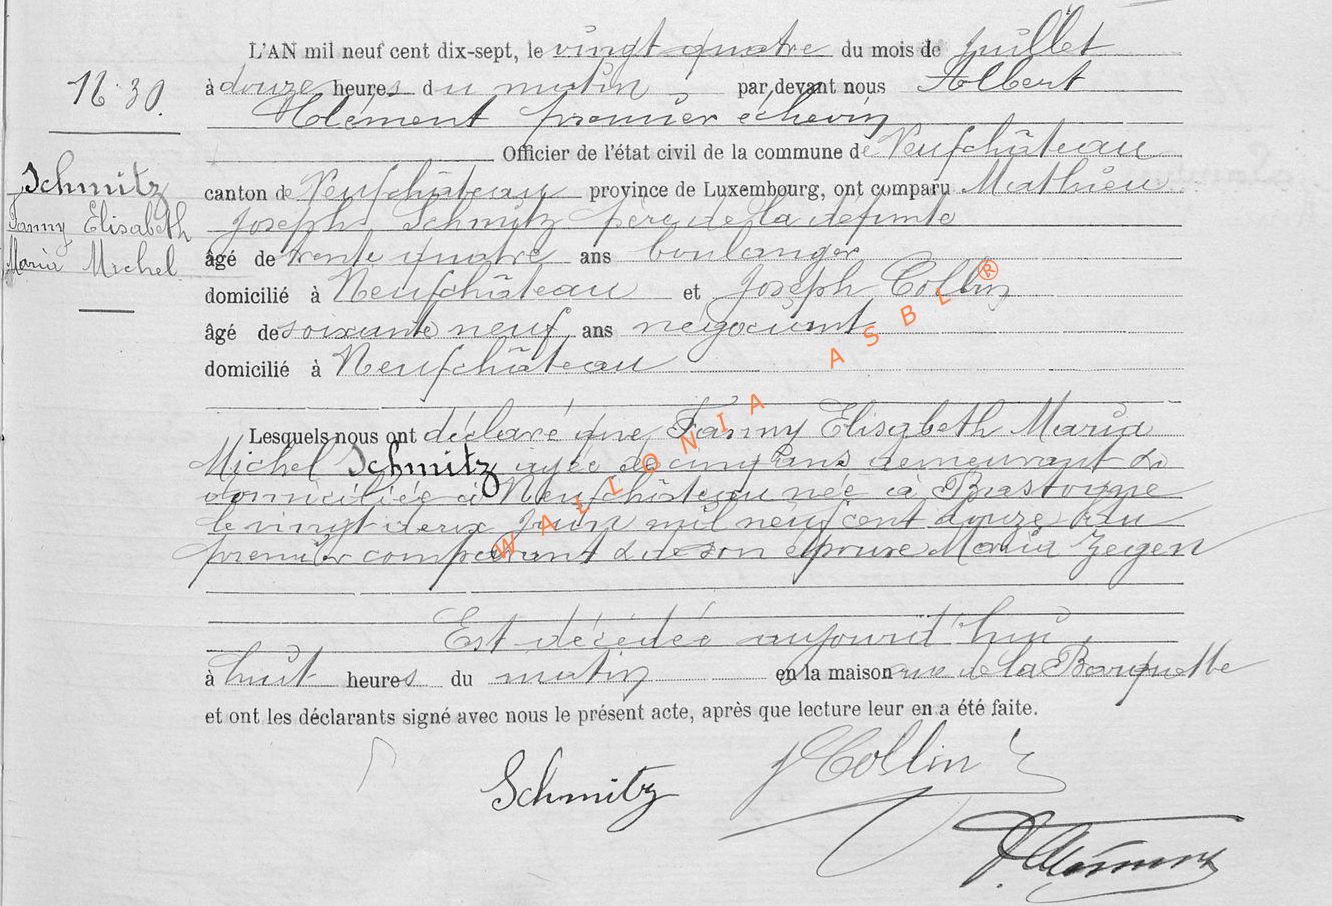 L'AN mil neuf cent dix-sept, le vingt quatre du mois de Juillet
à douze heures du matin par devant nous Albert
Clément premier échevin
Officier de l'état civil de la commune de Neufchâteau
canton de Neufchâteau province de Luxembourg, ont comparu Mathieu
Joseph Schmitz père de la défunte
âgé de trente quatre ans boulanger
domicilié à Neufchâteau et Joseph Collin
âgé de soixante neuf ans négociant
domicilié à Neufchâteau
Lesquels nous ont déclaré que Fanny Elisabeth Maria
Michel Schmitz agée de cinq ans demeurant &
domiciliée à Neufchâteau née à Bastogne
le vingt deux Juin mil neuf cent douze du
premier comparant & de son épouse Maria Zeigen
Est décédée aujourd'hui
à huit heures du matin en la maison rue de la Barquette
et ont les déclarants signé avec nous le présent acte, après que lecture leur en a été faite.
Schmitz
J Collin
30.
Schmitz
Fanny Elisabeth
Maria Michel
WALLONIA ASBL®